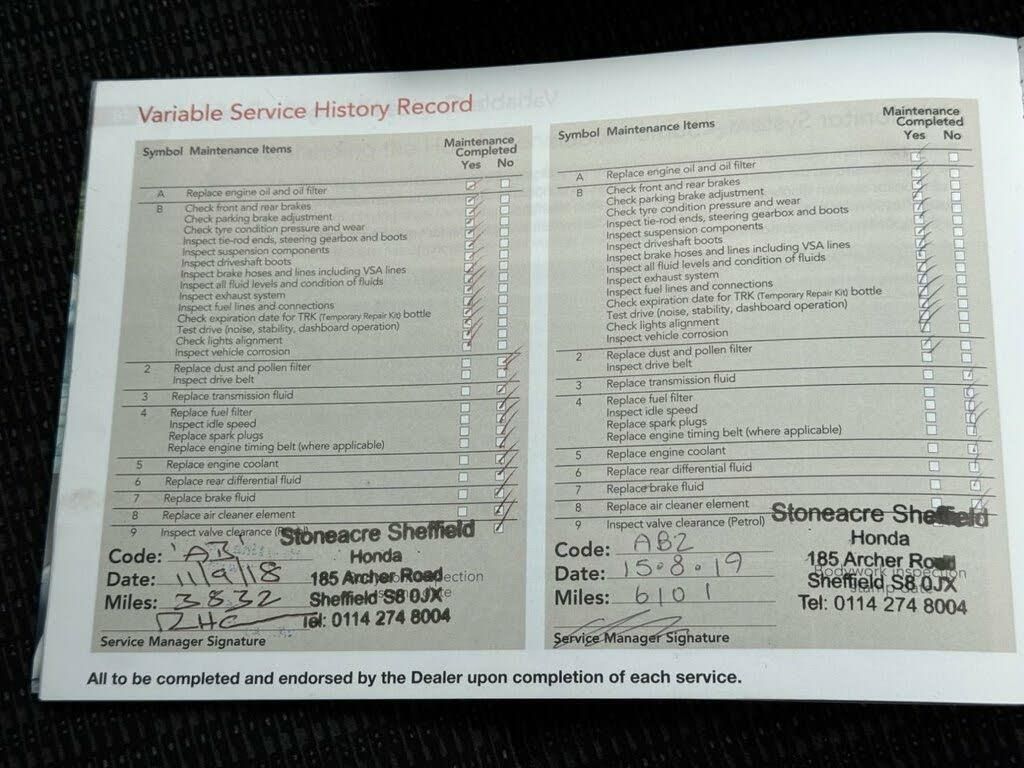 Variable Service History Record
Symbol Maintenance Items
Maintenance
Completed
Yes No
A Replace engine oil and oil filter
B Check front and rear brakes
Check parking brake adjustment
Check tyre condition pressure and wear
Inspect tie-rod ends, steering gearbox and boots
Inspect suspension components
Inspect driveshaft boots
Inspect brake hoses and lines including VSA lines
Inspect all fluid levels and condition of fluids
Inspect exhaust system
Inspect fuel lines and connections
Check expiration date for TRK (Temporary Repair Kit) bottle
Test drive (noise, stability, dashboard operation)
Check lights alignment
Inspect vehicle corrosion
2 Replace dust and pollen filter
Inspect drive belt
3 Replace transmission fluid
4 Replace fuel filter
Inspect idle speed
Replace spark plugs
Replace engine timing belt (where applicable)
5 Replace engine coolant
6 Replace rear differential fluid
7 Replace brake fluid
8 Replace air cleaner element
9 Inspect valve clearance
Stoneacre Sheffield
Honda
185 Archer Road
Sheffield S8 0JX
Tel: 0114 274 8004
Code: AB
Date: 11/9/18
Miles: 3832
Service Manager Signature
Symbol Maintenance Items
Maintenance
Completed
Yes No
A Replace engine oil and oil filter
B Check front and rear brakes
Check parking brake adjustment
Check tyre condition pressure and wear
Inspect tie-rod ends, steering gearbox and boots
Inspect suspension components
Inspect driveshaft boots
Inspect brake hoses and lines including VSA lines
Inspect all fluid levels and condition of fluids
Inspect exhaust system
Inspect fuel lines and connections
Check expiration date for TRK (Temporary Repair Kit) bottle
Test drive (noise, stability, dashboard operation)
Check lights alignment
Inspect vehicle corrosion
2 Replace dust and pollen filter
Inspect drive belt
3 Replace transmission fluid
4 Replace fuel filter
Inspect idle speed
Replace spark plugs
Replace engine timing belt (where applicable)
5 Replace engine coolant
6 Replace rear differential fluid
7 Replace brake fluid
8 Replace air cleaner element
9 Inspect valve clearance (Petrol)
Stoneacre Sheffield
Honda
185 Archer Road
Bodywork inspection
Sheffield S8 0JX
Tel: 0114 274 8004
Code: AB2
Date: 15.8.19
Miles: 6101
Service Manager Signature
All to be completed and endorsed by the Dealer upon completion of each service.